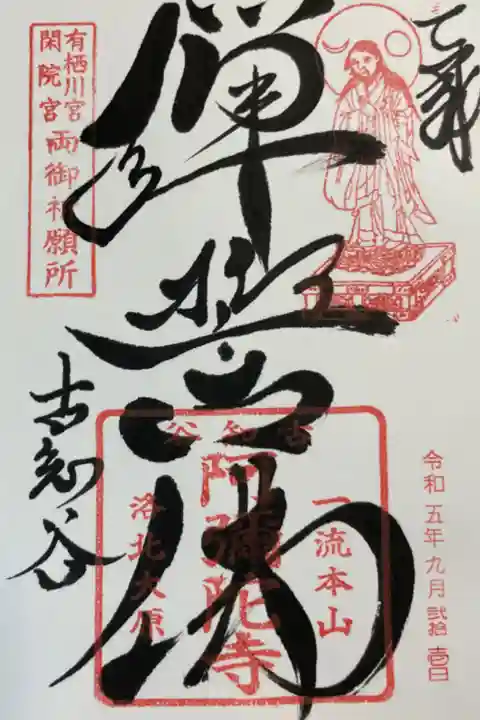 奉拝
令和五年九月弐拾壱日
弾誓佛
有栖川宮
閑院宮
両御祈願所
古知谷
古知谷
一流本山
阿彌陀寺
洛北大原